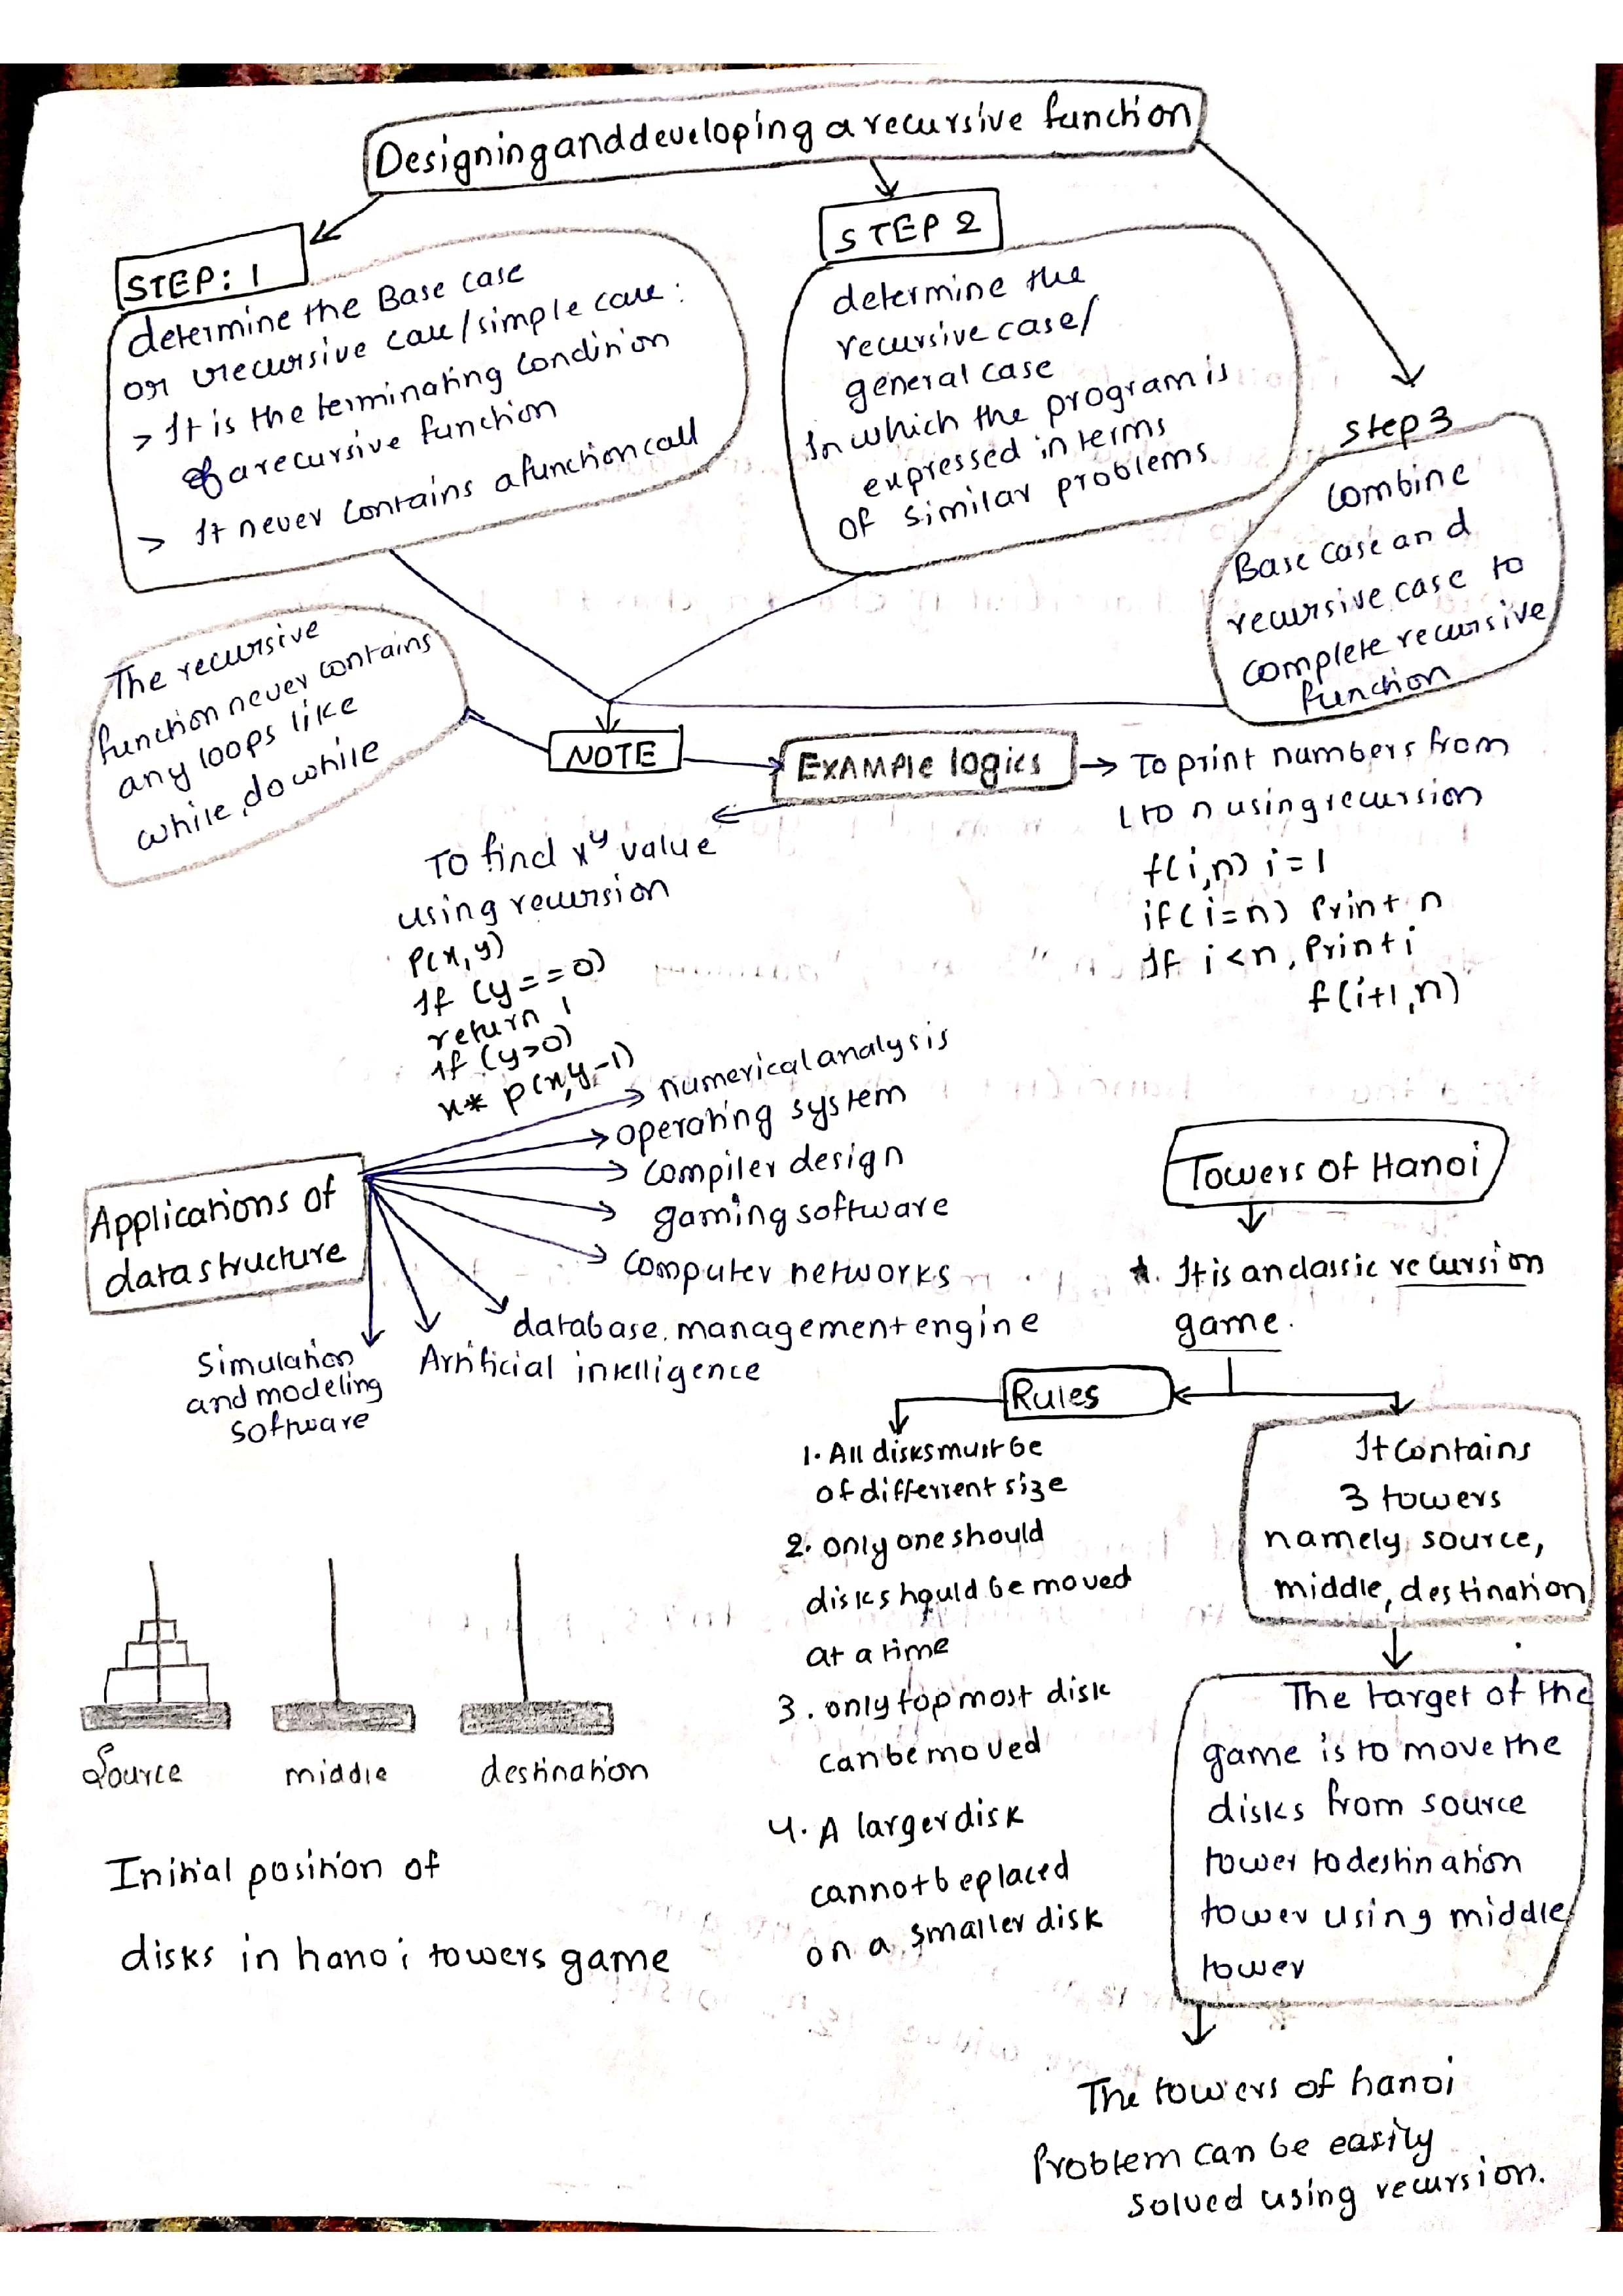 Designing and developing a recursive function
STEP: 1
determine the Base case
or recursive case/simple case:
> It is the terminating condition
of a recursive function
> It never contains a function call
STEP 2
determine the
recursive case/
general case
In which the program is
expressed in terms
of similar problems
Step 3
combine
Base case and
recursive case to
complete recursive
function
The recursive
function never contains
any loops like
while, do while
NOTE
EXAMPle logics
To print numbers from
1 to n using recursion
f(i,n) i=1
if(i=n) Print n
If i<n, Print i
f(i+1,n)
To find x^y value
using recursion
P(x,y)
If (y==0)
return 1
If (y>0)
x* P(x,y-1)
Applications of
data structure
numerical analysis
operating system
compiler design
gaming software
computer networks
database management engine
Artificial intelligence
Simulation
and modeling
software
Towers of Hanoi
*. It is an classic recursion
game.
Rules
1. All disks must be
of different size
2. only one should
disk should be moved
at a time
3. only top most disk
can be moved
4. A larger disk
cannot be placed
on a smaller disk
It contains
3 towers
namely source,
middle, destination
The target of the
game is to move the
disks from source
tower to destination
tower using middle
tower
The towers of hanoi
Problem can be easily
solved using recursion.
Source
middle
destination
Initial position of
disks in hanoi towers game